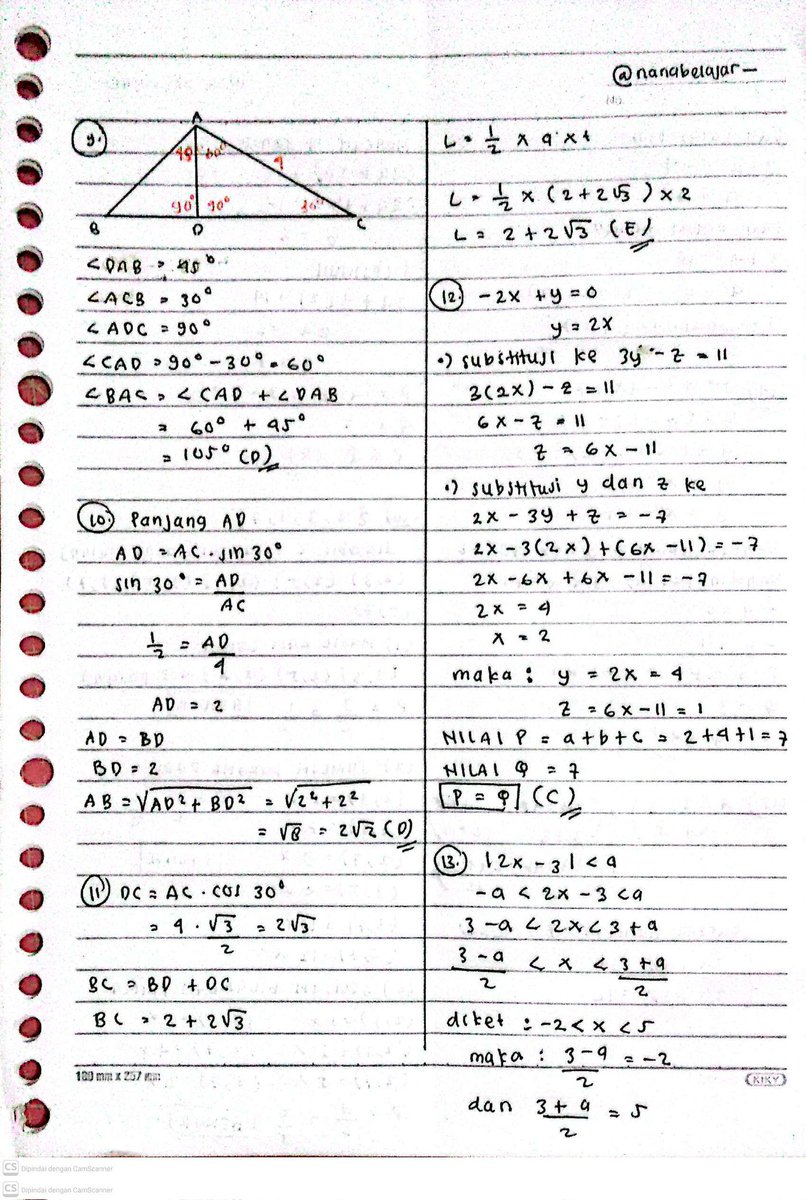 @nanabelajar_
No.
9.
A
45° 60°
4
90° 90° 30°
B D C
∠DAB = 45°
∠ACB = 30°
∠ADC = 90°
∠CAD = 90° - 30° = 60°
∠BAC = ∠CAD + ∠DAB
= 60° + 45°
= 105° (D)
10. Panjang AD
AD = AC . sin 30°
sin 30° = AD/AC
1/2 = AD/4
AD = 2
AD = BD
BD = 2
AB = √AD² + BD² = √2² + 2²
= √8 = 2√2 (D)
11. DC = AC . cos 30°
= 4 . √3/2 = 2√3
BC = BD + DC
BC = 2 + 2√3
L = 1/2 x a x t
L = 1/2 x (2 + 2√3) x 2
L = 2 + 2√3 (E)
12. -2x + y = 0
y = 2x
•) substitusi ke 3y - z = 11
3(2x) - z = 11
6x - z = 11
z = 6x - 11
•) substitusi y dan z ke
2x - 3y + z = -7
2x - 3(2x) + (6x - 11) = -7
2x - 6x + 6x - 11 = -7
2x = 4
x = 2
maka : y = 2x = 4
z = 6x - 11 = 1
NILAI P = a + b + c = 2 + 4 + 1 = 7
NILAI Q = 7
P = Q (C)
13. |2x - 3| < a
-a < 2x - 3 < a
3 - a < 2x < 3 + a
3 - a/2 < x < 3 + a/2
diket : -2 < x < 5
maka : 3 - a/2 = -2
dan 3 + a/2 = 5
180 mm x 257 mm
KIKY
CS Dipindai dengan CamScanner
CS Dipindai dengan CamScanner